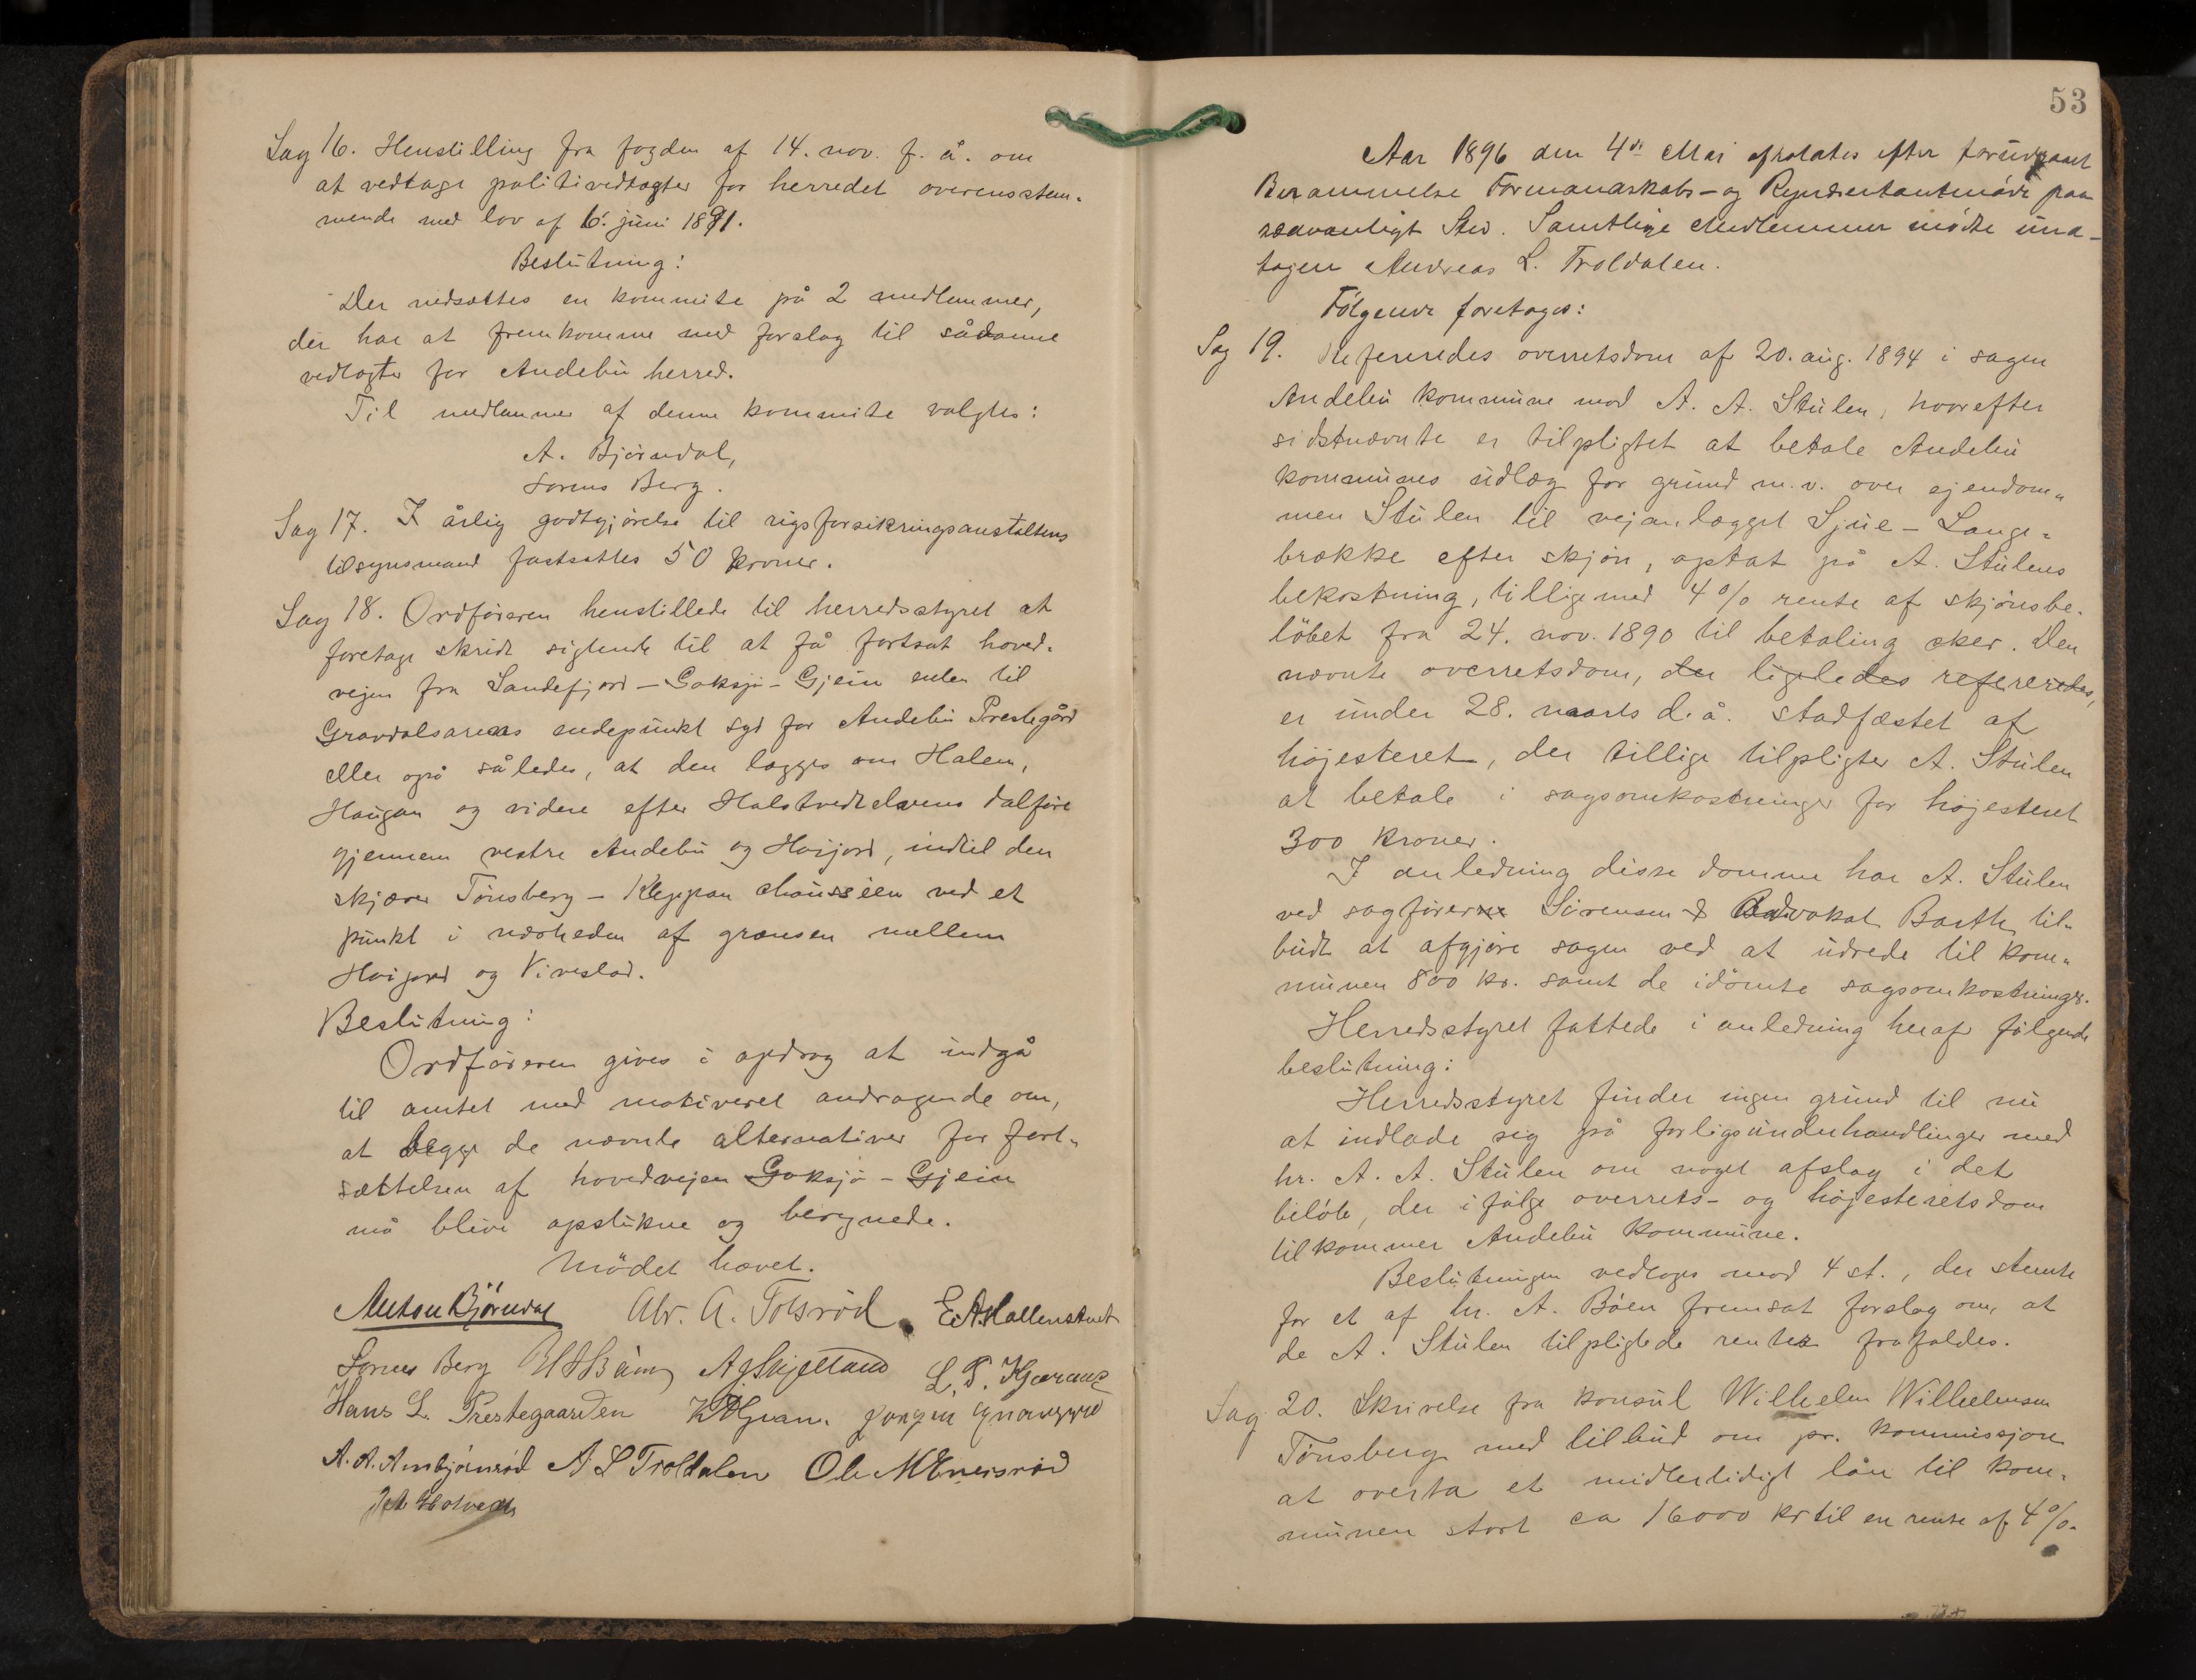 Sag 16. Henstilling fra fogden af 14. nov. f. å. om
at vedtage politivedtægter for herredet overensstem-
mende med lov af 6. juni 1891.
Beslutning:
Der nedsættes en kommite på 2 medlemmer,
der har at fremkomme med forslag til sådanne
vedtægter for Andebu herred.
Til medlemmer af denne kommite valgtes:
A. Bjørndal,
Sorens Berg.
Sag 17. I årlig godtgjørelse til rigsforsikringsanstaltens
tilsynsmand fastsattes 50 kroner.
Sag 18. Ordføreren henstillede til herredsstyret at
foretage skridt sigtende til at få fortsat hoved-
vejen fra Sandefjord - Goksjø - Gjein enten til
Gravdalsarmens endepunkt syd for Andebu Prestegård
eller også således, at den lægges om Halem,
Haugan og videre efter Halstvedtelvens dalføre
gjennem vestre Andebu og Høijord, indtil den
skjærer Tønsberg - Kleppan chausséen ved et
punkt i nærheden af grænsen mellem
Høijord og Vivestad.
Beslutning:
Ordføreren gives i opdrag at indgå
til amtet med motiveret andragende om,
at begge de nævnte alternativer for fort-
sættelsen af hovedvejen Goksjø - Gjein
må blive opstukne og beregnede.
Mödet hævet.
Anton Bjørndal Abr. A. Tolsrød E. A. Møllenstad
Sorens Berg A Skjelland L. P. Kjæraas
Hans L. Prestegaarden
A. A. Anbjørnrød A L Troldalen Ole M Eneisrød
53
Aar 1896 den 4de Mai afholdtes efter forudgaaet
Berammelse Formandskabs- og Repræsentantmöde paa
sædvanligt Sted. Samtlige Medlemmer mödte und-
tagen Andreas L. Troldalen.
Følgende foretages:
Sag 19. Refereredes overretsdom af 20. aug. 1894 i sagen
Andebu kommune mod A. A. Stulen, hvorefter
sidstnævnte er tilpligtet at betale Andebu
kommunes udlæg for grund m. v. over ejendom-
men Stulen til vejanlægget Sjue - Lange-
brække efter skjøn, optat på A. Stulens
bekostning, tilligemed 4% rente af skjønsbe-
løbet fra 24. nov. 1890 til betaling sker. Den
nævnte overretsdom, der ligeledes refereredes,
er under 28. marts d. å. stadfæstet af
højesteret, der tillige tilpligter A. Stulen
at betale i sagsomkostninger for højesteret
300 kroner.
I anledning disse domme har A. Stulen
ved sagfører Sørensen & Advokat Barth til-
budt at afgjøre sagen ved at udrede til kom-
munen 800 kr. samt de idømte sagsomkostninger.
Herredsstyret fattede i anledning heraf følgende
beslutning:
Herredsstyret finder ingen grund til nu
at indlade sig på forligsunderhandlinger med
hr. A. A. Stulen om noget afslag i det
beløb, der ifølge overrets- og højesteretsdom
tilkommer Andebu kommune.
Beslutningen vedtoges mod 4 st., der stemte
for et af hr. A. Böen fremsat forslag om, at
de A. Stulen tilpligtede renter frafaldes.
Sag 20. Skrivelse fra konsul Wilhelm Wilhelmsen
Tønsberg med tilbud om pr. kommissjon
at overta et midlertidigt lån til kom-
munen stort ca 16000 kr til en rente af 4%.